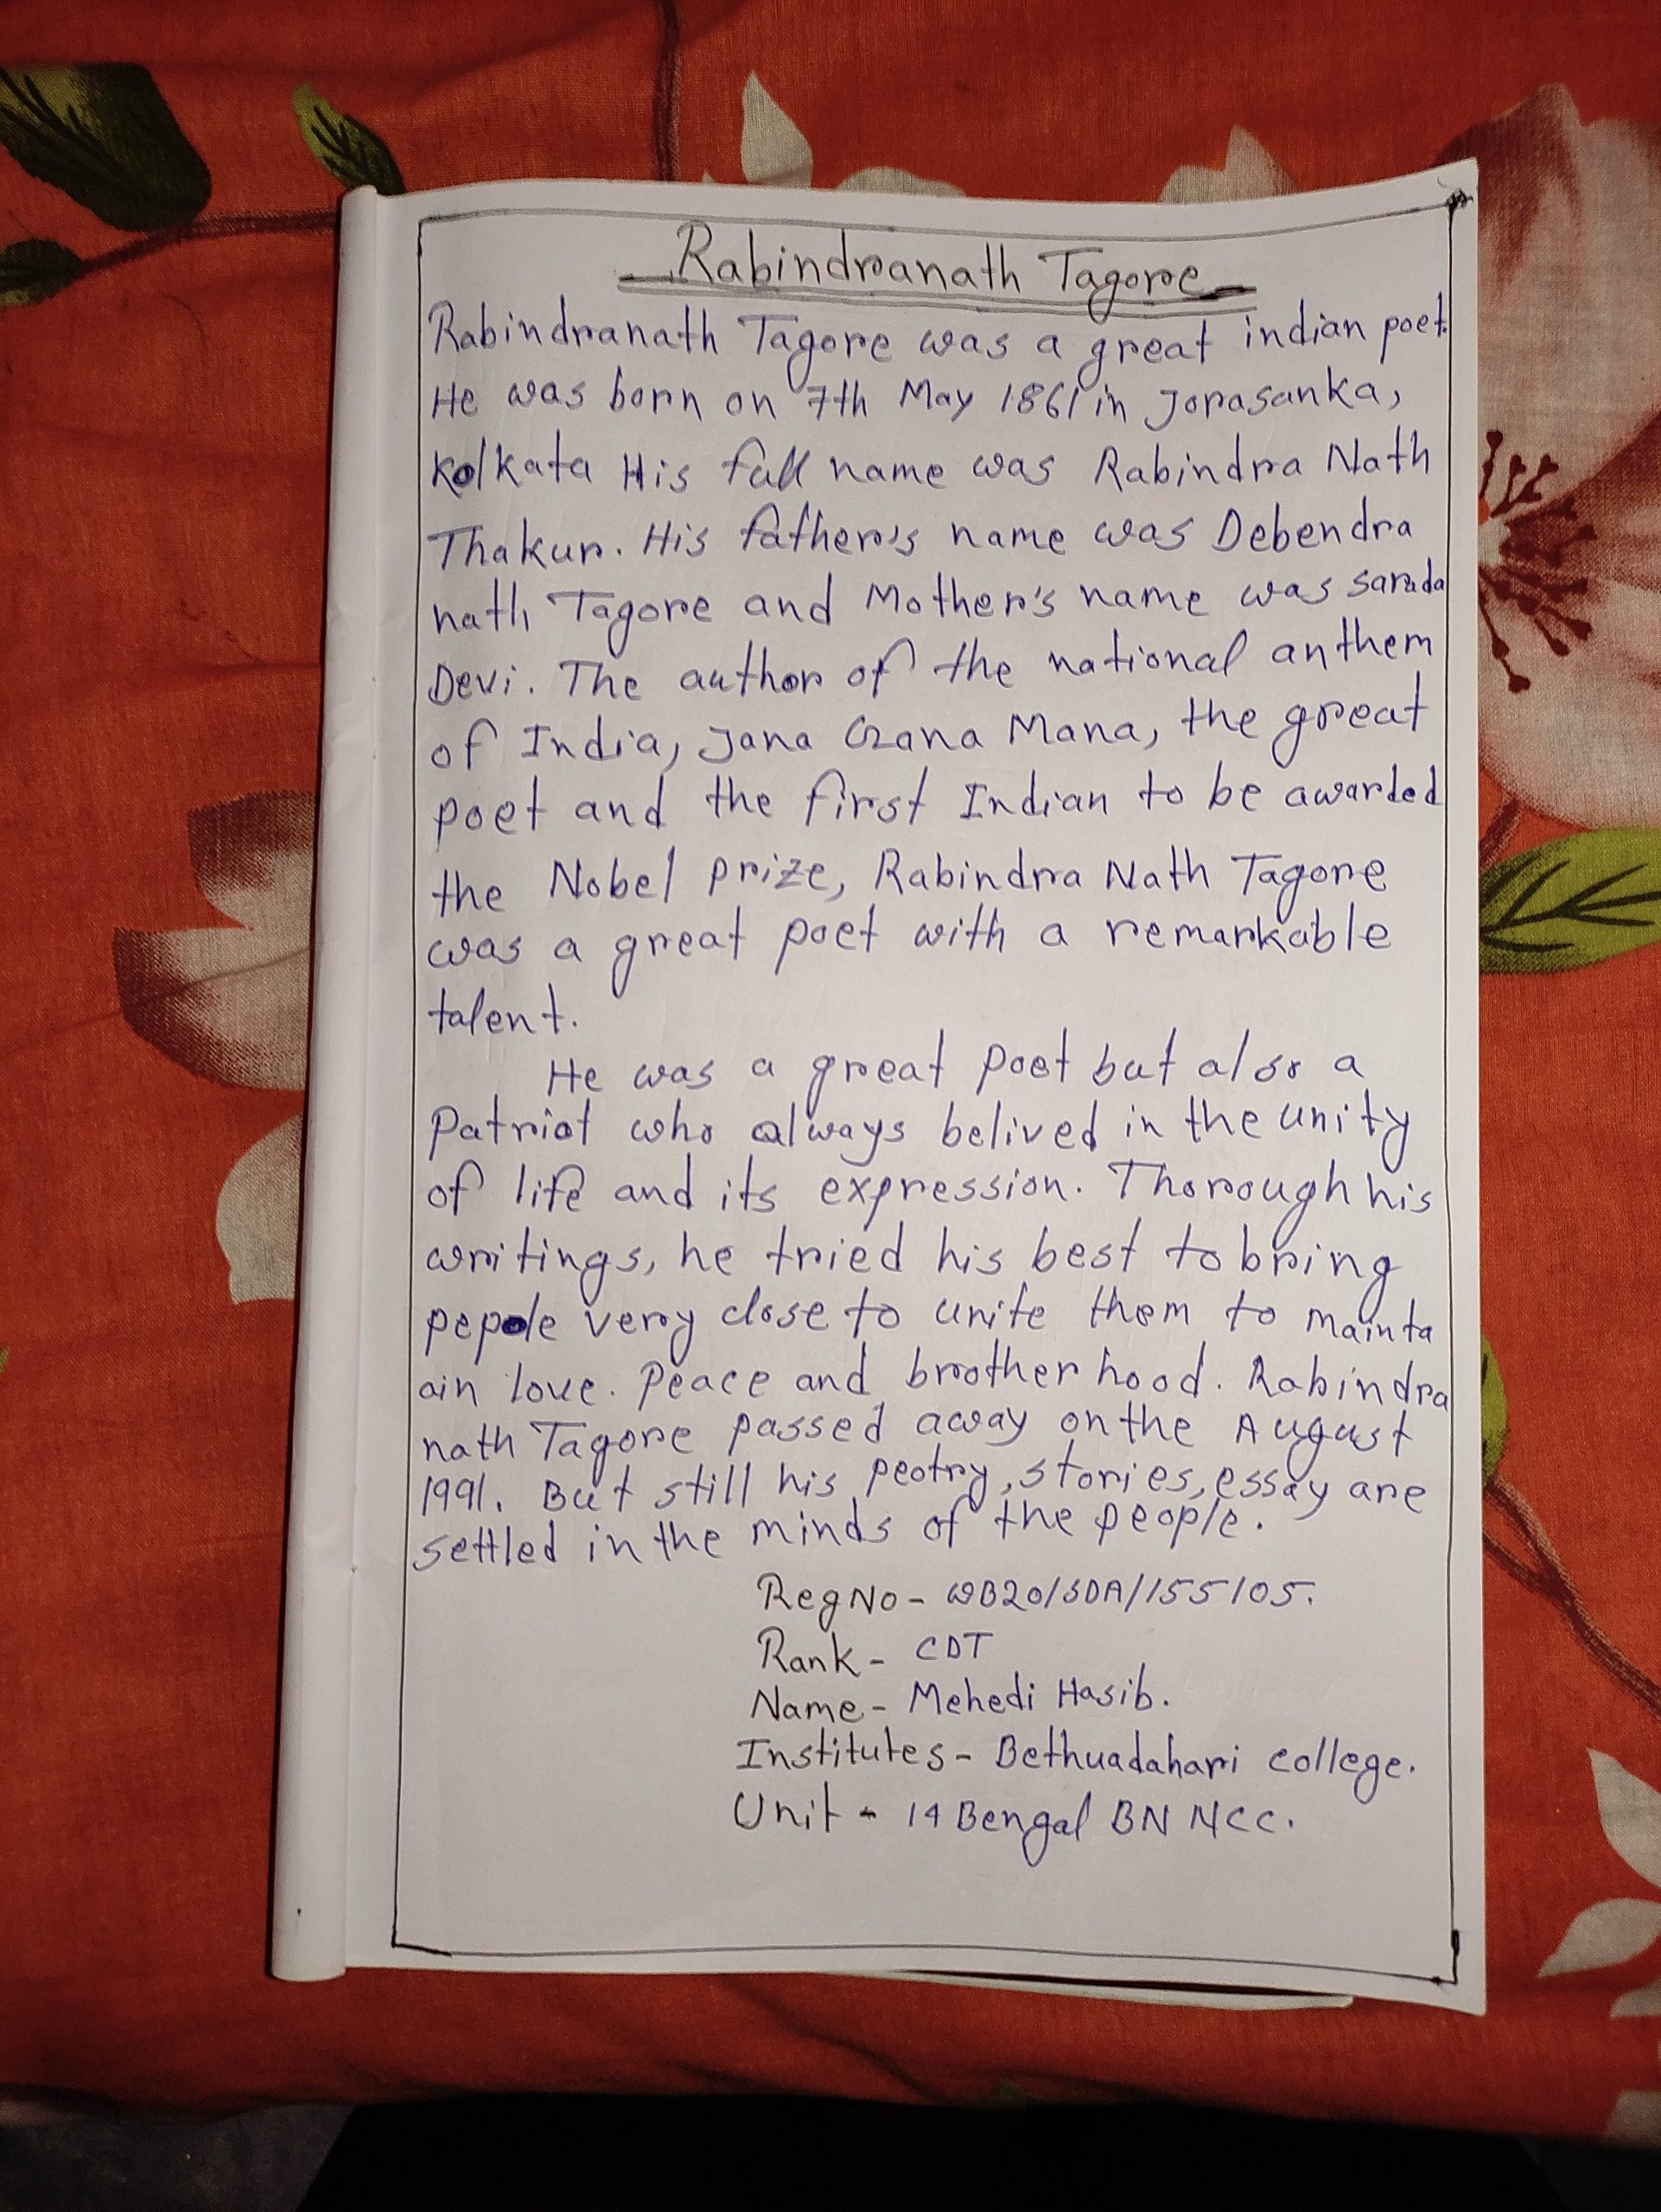 Rabindranath Tagore
Rabindranath Tagore was a great indian poet.
He was born on 7th May 1861 in Jorasanka,
Kolkata His full name was Rabindra Nath
Thakur. His father's name was Debendra
nath Tagore and Mother's name was Sarada
Devi. The author of the national anthem
of India, Jana Gana Mana, the great
poet and the first Indian to be awarded
the Nobel prize, Rabindra Nath Tagore
was a great poet with a remarkable
talent.
He was a great poet but also a
Patriot who always belived in the unity
of life and its expression. Thorough his
writings, he tried his best to bring
pepole very close to unite them to mainta
ain love. Peace and brother hood. Rabindra
nath Tagore passed away on the August
1991. But still his peotry, stories, essay are
settled in the minds of the people.
Reg No - WB20/SDA/155105.
Rank - CDT
Name - Mehedi Hasib.
Institutes - Bethuadahari college.
Unit - 14 Bengal BN NCC.